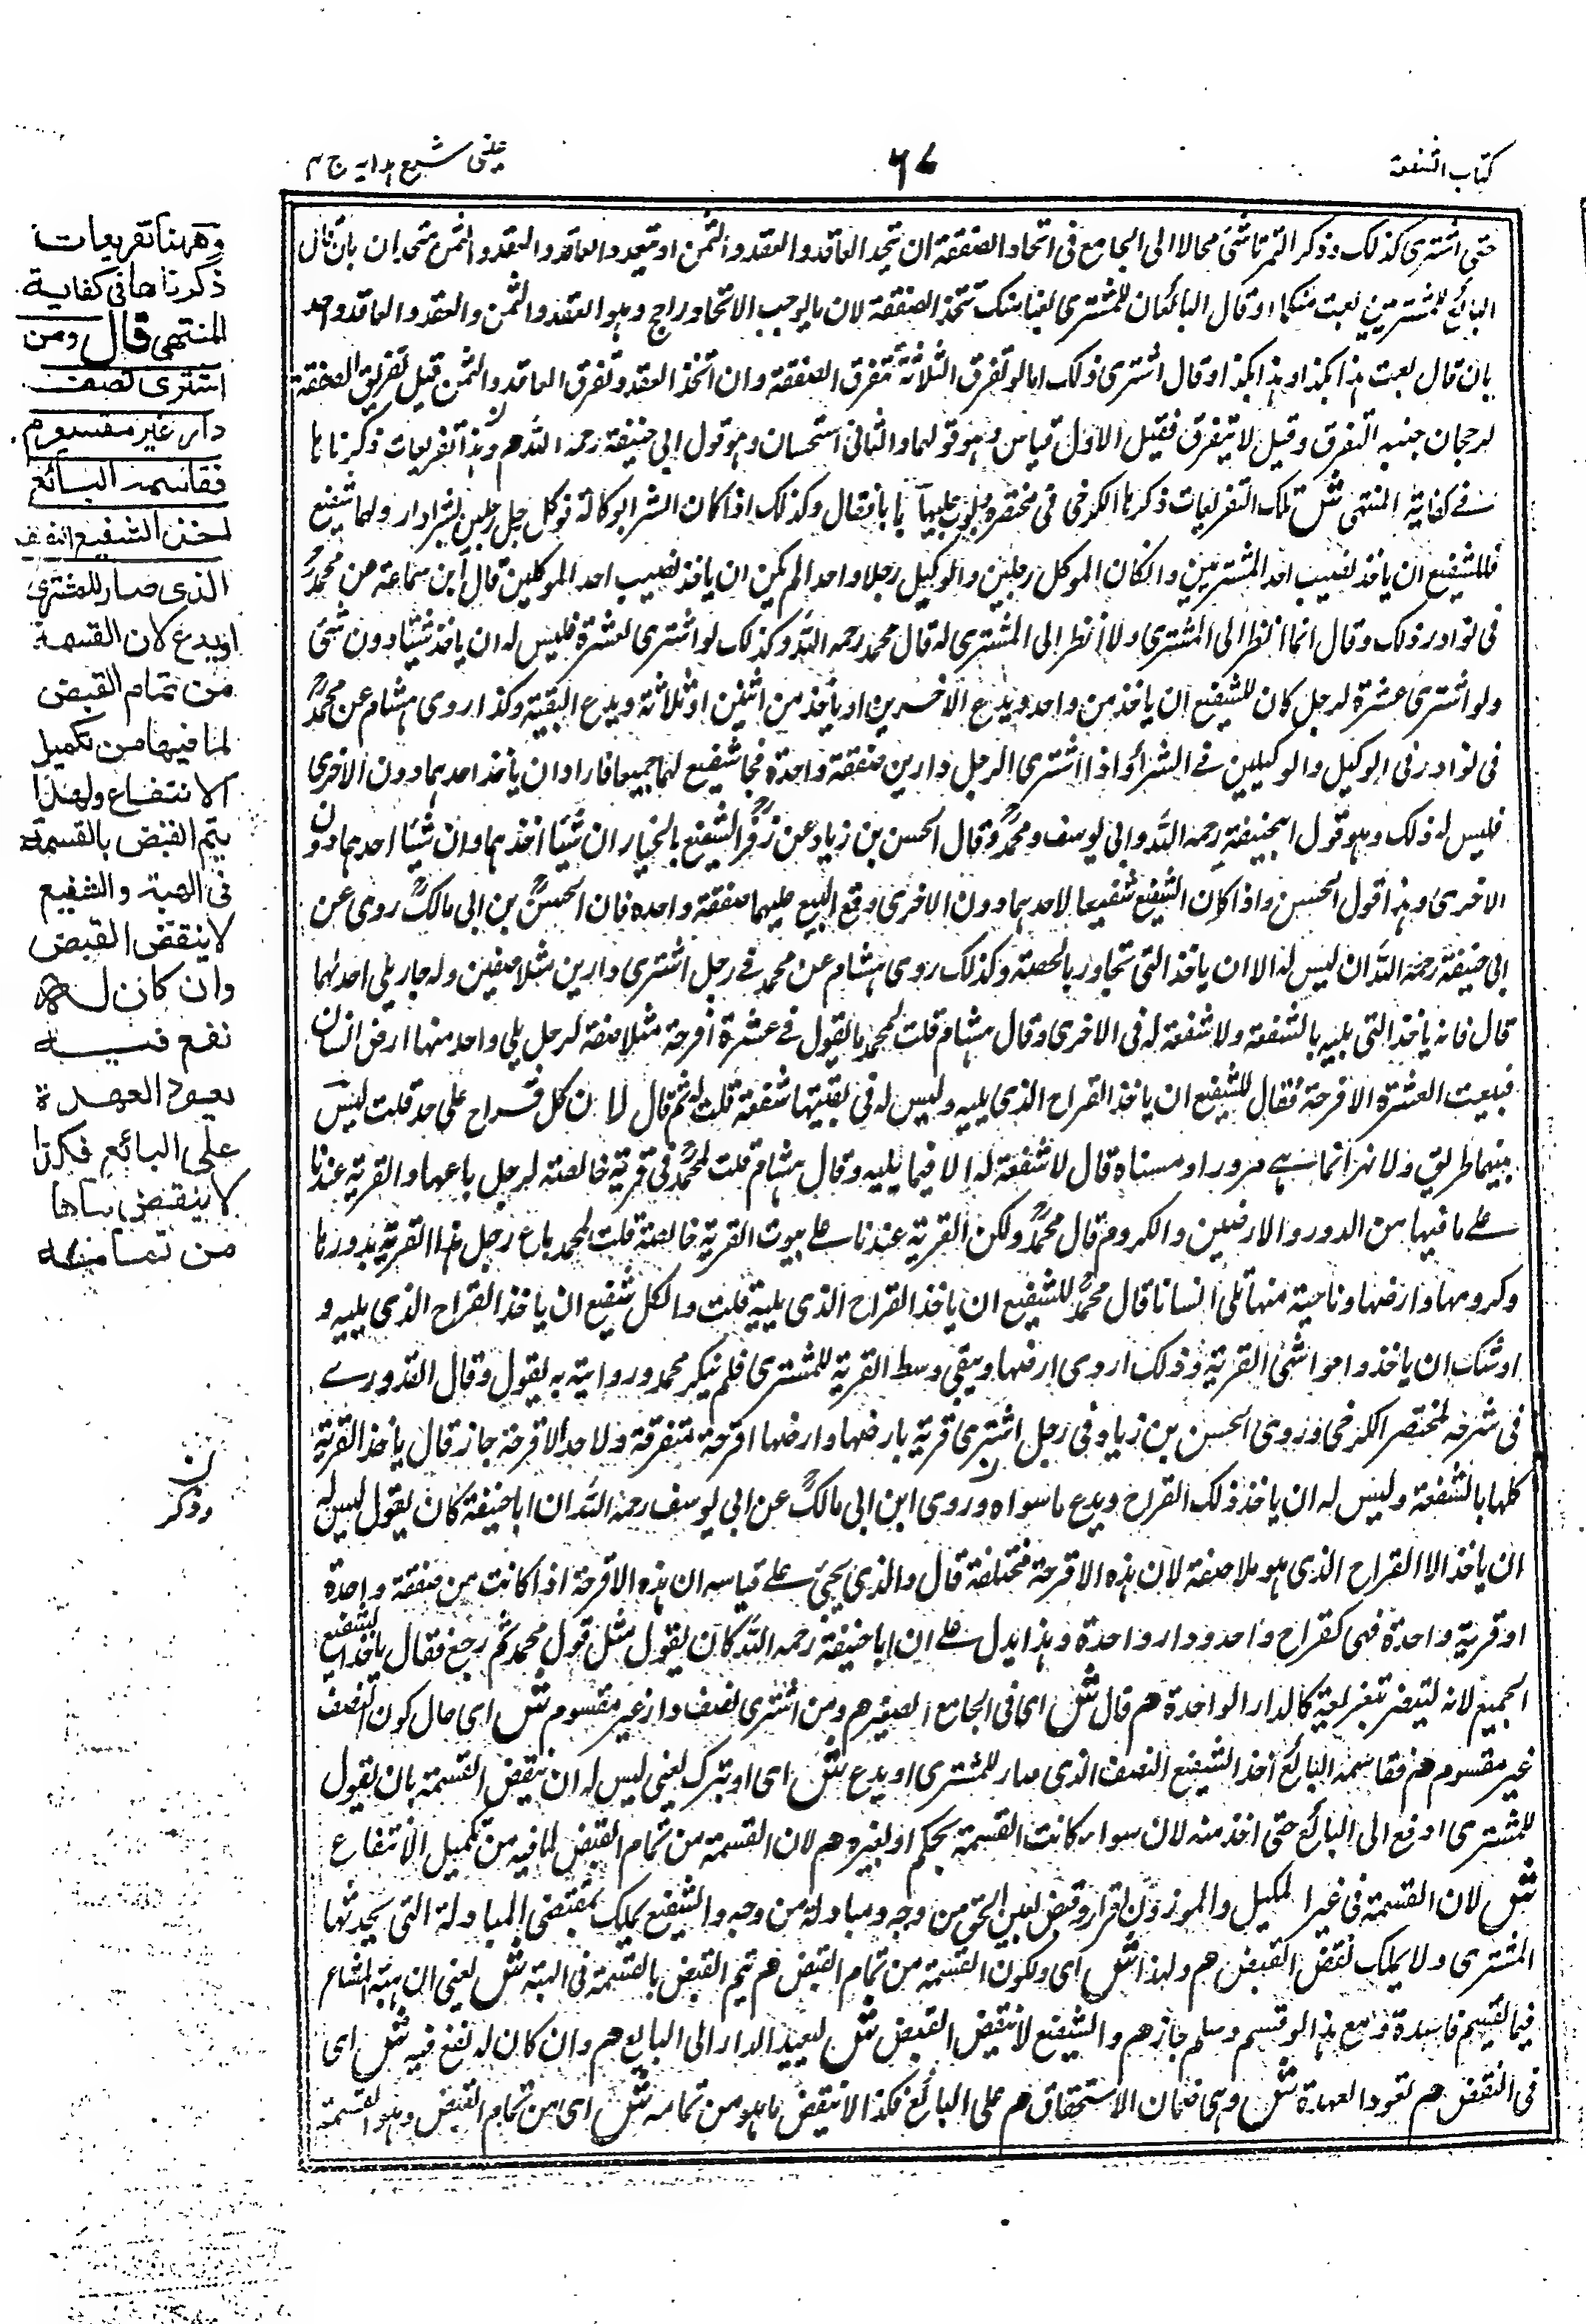 كتاب الشفعة
٦٧
عينى شرح هدايه ج ٣
حتى اشترى كذلك وذكر التمرتاشى محالا الى الجامع فى اتحاد الصفقة ان يتحد العاقد والعقد والثمن او يتعدد العاقد والعقد والثمن متحد ان بان قال
البائع للمشتريين بعت منكما او قال البائعان للمشترى بعنا منك تتحد الصفقة لان ما يوجب الاتحاد راجح وهو العقد والثمن والعقد والعاقد واحد
بان قال بعت هذا بكذا وهذا بكذا او قال اشترى ذلك اما لو تفرق الثلاثة تتفرق الصفقة وان اتحد العقد وتفرق العاقد والثمن قيل تفريق الصفقة
لرجحان جنبه التفرق وقيل لا يتفرق فقيل الاول قياس وهو قولهما والثانى استحسان وهو قول ابى حنيفة رحمه الله هم وهذا تفريعات ذكرناها
فى كفاية المنتهى ش تلك التفريعات ذكرها الكرخى فى مختصره وبوب عليها بابا فقال وكذلك اذا كان الشراء بوكالة فوكل رجل رجلين بشراء دار ولها شفيع
فللشفيع ان ياخذ نصيب احد المشتريين وان كان الموكل رجلين والوكيل رجلا واحدا لم يكن ان ياخذ نصيب احد الموكلين قال ابن سماعة عن محمد
فى نوادر ذلك وقال انما انظر الى المشترى ولا انظر الى المشترى له قال محمد رحمه الله وكذلك لو اشترى لعشرة فليس له ان ياخذ شيئا دون شئ
ولو اشترى عشرة لرجل كان للشفيع ان ياخذ من واحد ويدع الاخرين او ياخذ من اثنين او ثلاثة ويدع البقية وكذا روى هشام عن محمد
فى نوادر فى الوكيل والوكيلين فى الشراء واذا اشترى الرجل دارين صفقة واحدة فجا شفيع لهما جميعا فاراد ان ياخذ احدهما دون الاخرى
فليس له ذلك وهو قول ابيحنيفة رحمه الله وابى يوسف ومحمد وقال الحسن بن زياد عن زفر الشفيع بالخيار ان شئا اخذهما وان شئا احدهما دون
الاخرى وهذا قول الحسن واذا كان الشفيع شفيعا لاحدهما دون الاخرى وقع البيع عليهما صفقة واحده فان الحسن بن ابى مالك روى عن
ابى حنيفة رحمه الله ان ليس له الا ان ياخذ التى تجاور بالحصة وكذلك روى هشام عن محمد فى رجل اشترى دارين متلاصقين وله جار يلى احدهما
قال فانه ياخذ التى يليه بالشفعة ولا شفعة له فى الاخرى وقال هشام قلت لمحمد ما تقول فى عشرة اقرحة متلاصقة لرجل يلى واحد منها ارض انسان
فبيعت العشرة الاقرحة فقال للشفيع ان ياخذ القراح الذى يليه وليس له فى بقيتها شفعة قلت له ثم قال لان كل قراح على حد قلت ليس
بينهما طريق ولا نهر انما هى مرور او مسناه قال لا شفعة له الا فيما يليه وقال هشام قلت لمحمد فى قرية خالصة لرجل باعها والقرية عندنا
على ما فيها من الدور والارضين والكروم قال محمد ولكن القرية عندنا على بيوت القرية خالصة قلت لمحمد باع رجل هذا القرية بدورها
وكرومها وارضها وناحية منها تلى انسانا قال محمد للشفيع ان ياخذ القراح الذى يليه قلت والكل شفيع ان ياخذ القراح الذى يليه و
اوشك ان ياخذوا حواشى القرية وذلك اروى ارضها ويبقى وسط القرية للمشترى فلم ينكر محمد ورواية به يقول وقال القدورى
فى شرحه لمختصر الكرخى وروى الحسن بن زياد فى رجل اشترى قرية بارضها وارضها اقرحة متفرقة ولاحد الاقرحة جار قال ياخذ القرية
كلها بالشفعة وليس له ان ياخذ ذلك القراح ويدع ما سواه وروى ابن ابى مالك عن ابى يوسف رحمه الله ان ابا حنيفة كان يقول ليس له
ان ياخذ الا القراح الذى هو ملاصقة لان هذه الاقرحة مختلفة قال والذى يجئ على قياسه ان هذه الاقرحة اذا كانت من صفقة واحدة
او قرية واحدة فهى كقراح واحد ودار واحدة وهذا يدل على ان ابا حنيفة رحمه الله كان يقول مثل قول محمد ثم رجع فقال ياخذ الشفيع
الجميع لانه ليتضر بتفريقه كالدار الواحدة هم قال ش اى فى الجامع الصغير هم ومن اشترى نصف دار غير مقسوم ش اى حال كون النصف
غير مقسوم هم فقاسمه البائع اخذ الشفيع النصف الذى صار للمشترى او يدع ش اى او يترك يعنى ليس له ان ينقض القسمة بان يقول
للمشترى ادفع الى البائع حتى اخذ منه لان سواء كانت القسمة بحكم او بغيره هم لان القسمة من تمام القبض لما فيه من تكميل الانتفاع
ش لان القسمة فى غير المكيل والموزون اقرار وقبض لعين الحق من وجه ومبادلة من وجه والشفيع يملك بمقتضى المبادلة التى يحدثها
المشترى ولا يملك نقض القبض هم ولهذا ش اى ولكون القسمة من تمام القبض هم يتم القبض بالقسمة فى الهبة ش يعنى ان هبة المشاع
فيما يقسم فاسدة ومع هذا لو قسم وسلم جاز هم والشفيع لا ينقض القبض ش ليعيد الدار الى البائع هم وان كان له نفع فيه ش اى
فى النقض هم بعود العهدة ش وهى ضمان الاستحقاق هم على البائع فكذا لا ينقض ما هو من تمامه ش اى من تمام القبض وهو القسمة
وههنا تفريعات
ذكرناها فى كفاية
المنتهى قال ومن
اشترى نصف
دار غير مقسوم
فقاسمه البائع
اخذ الشفيع النصف
الذى صار للمشترى
او يدع لان القسمة
من تمام القبض
لما فيها من تكميل
الانتفاع ولهذا
يتم القبض بالقسمة
فى الهبة والشفيع
لا ينقض القبض
وان كان له
نفع فيه
بعود العهدة
على البائع فكذا
لا ينقض ما هو
من تمامه
ن
وذكر